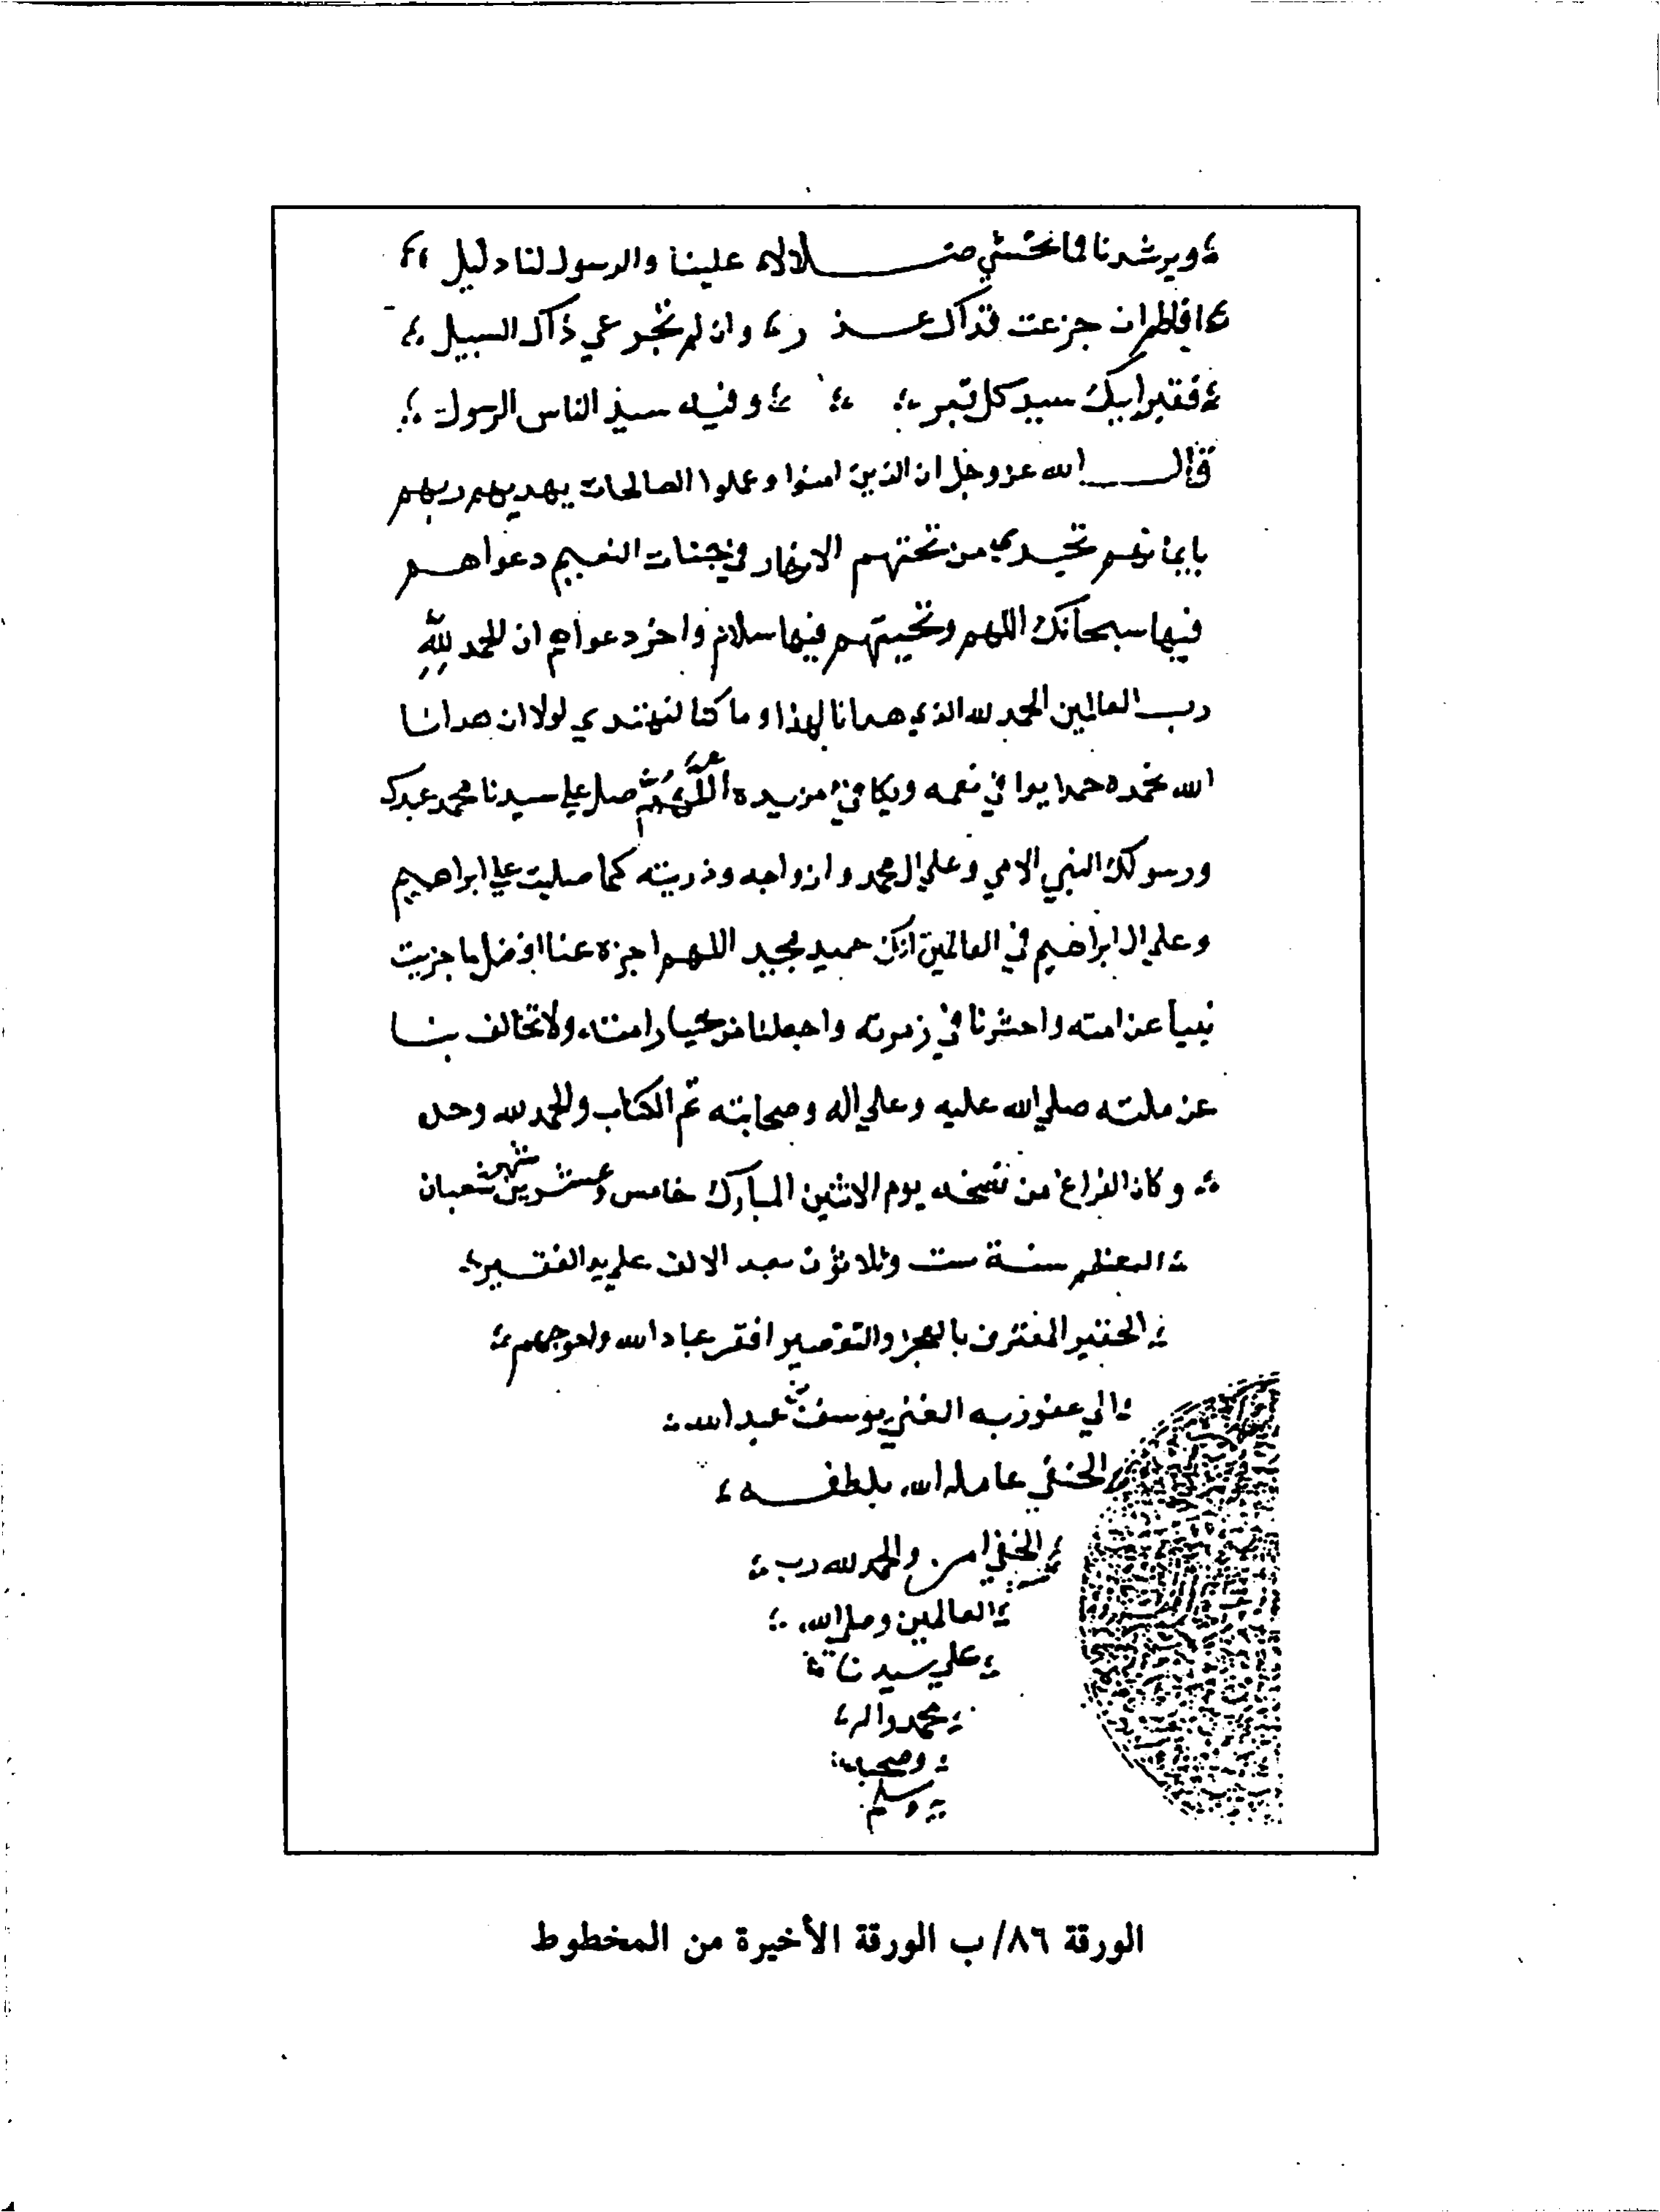 ويرشدنا فما نخشي ضلالا علينا والرسول لنا دليل
افاطم ان جزعت فذاك عذر وان لم تجزعي ذاك السبيل
فقبر ابيك سيد كل قبر وفيه سيد الناس الرسول
قال الله عز وجل ان الذين امنوا وعملوا الصالحات يهديهم ربهم
بايمانهم تجري من تحتهم الانهار في جنات النعيم دعواهم
فيها سبحانك اللهم وتحيتهم فيها سلام واخر دعواهم ان الحمد لله
رب العالمين الحمد لله الذي هدانا لهذا وما كنا لنهتدي لولا ان هدانا
الله نحمده حمدا يوافي نعمه ويكافئ مزيده اللهم صل علي سيدنا محمد عبدك
ورسولك النبي الامي وعلي ال محمد وازواجه وذريته كما صليت علي ابراهيم
وعلي ال ابراهيم في العالمين انك حميد مجيد اللهم اجزه عنا افضل ما جزيت
نبيا عن امته واحشرنا في زمرته واجعلنا من خيار امته ولا تخالف بنا
عن ملته صلي الله عليه وعلي اله وصحابته تم الكتاب والحمد لله وحده
وكان الفراغ من نسخه يوم الاثنين المبارك خامس وعشرين شهر شعبان
المعظم سنة ست وثلاثون بعد الالف علي يد الفقير
الحقير المعترف بالعجز والتقصير افقر عباد الله واحوجهم
الي عفو ربه الغني يوسف بن عبد الله
الحنفي عامله الله بلطفه
الخفي امين والحمد لله رب
العالمين وصلي الله
علي سيدنا
محمد واله
وصحبه
وسلم
الورقة ٨٦/ب الورقة الأخيرة من المخطوط